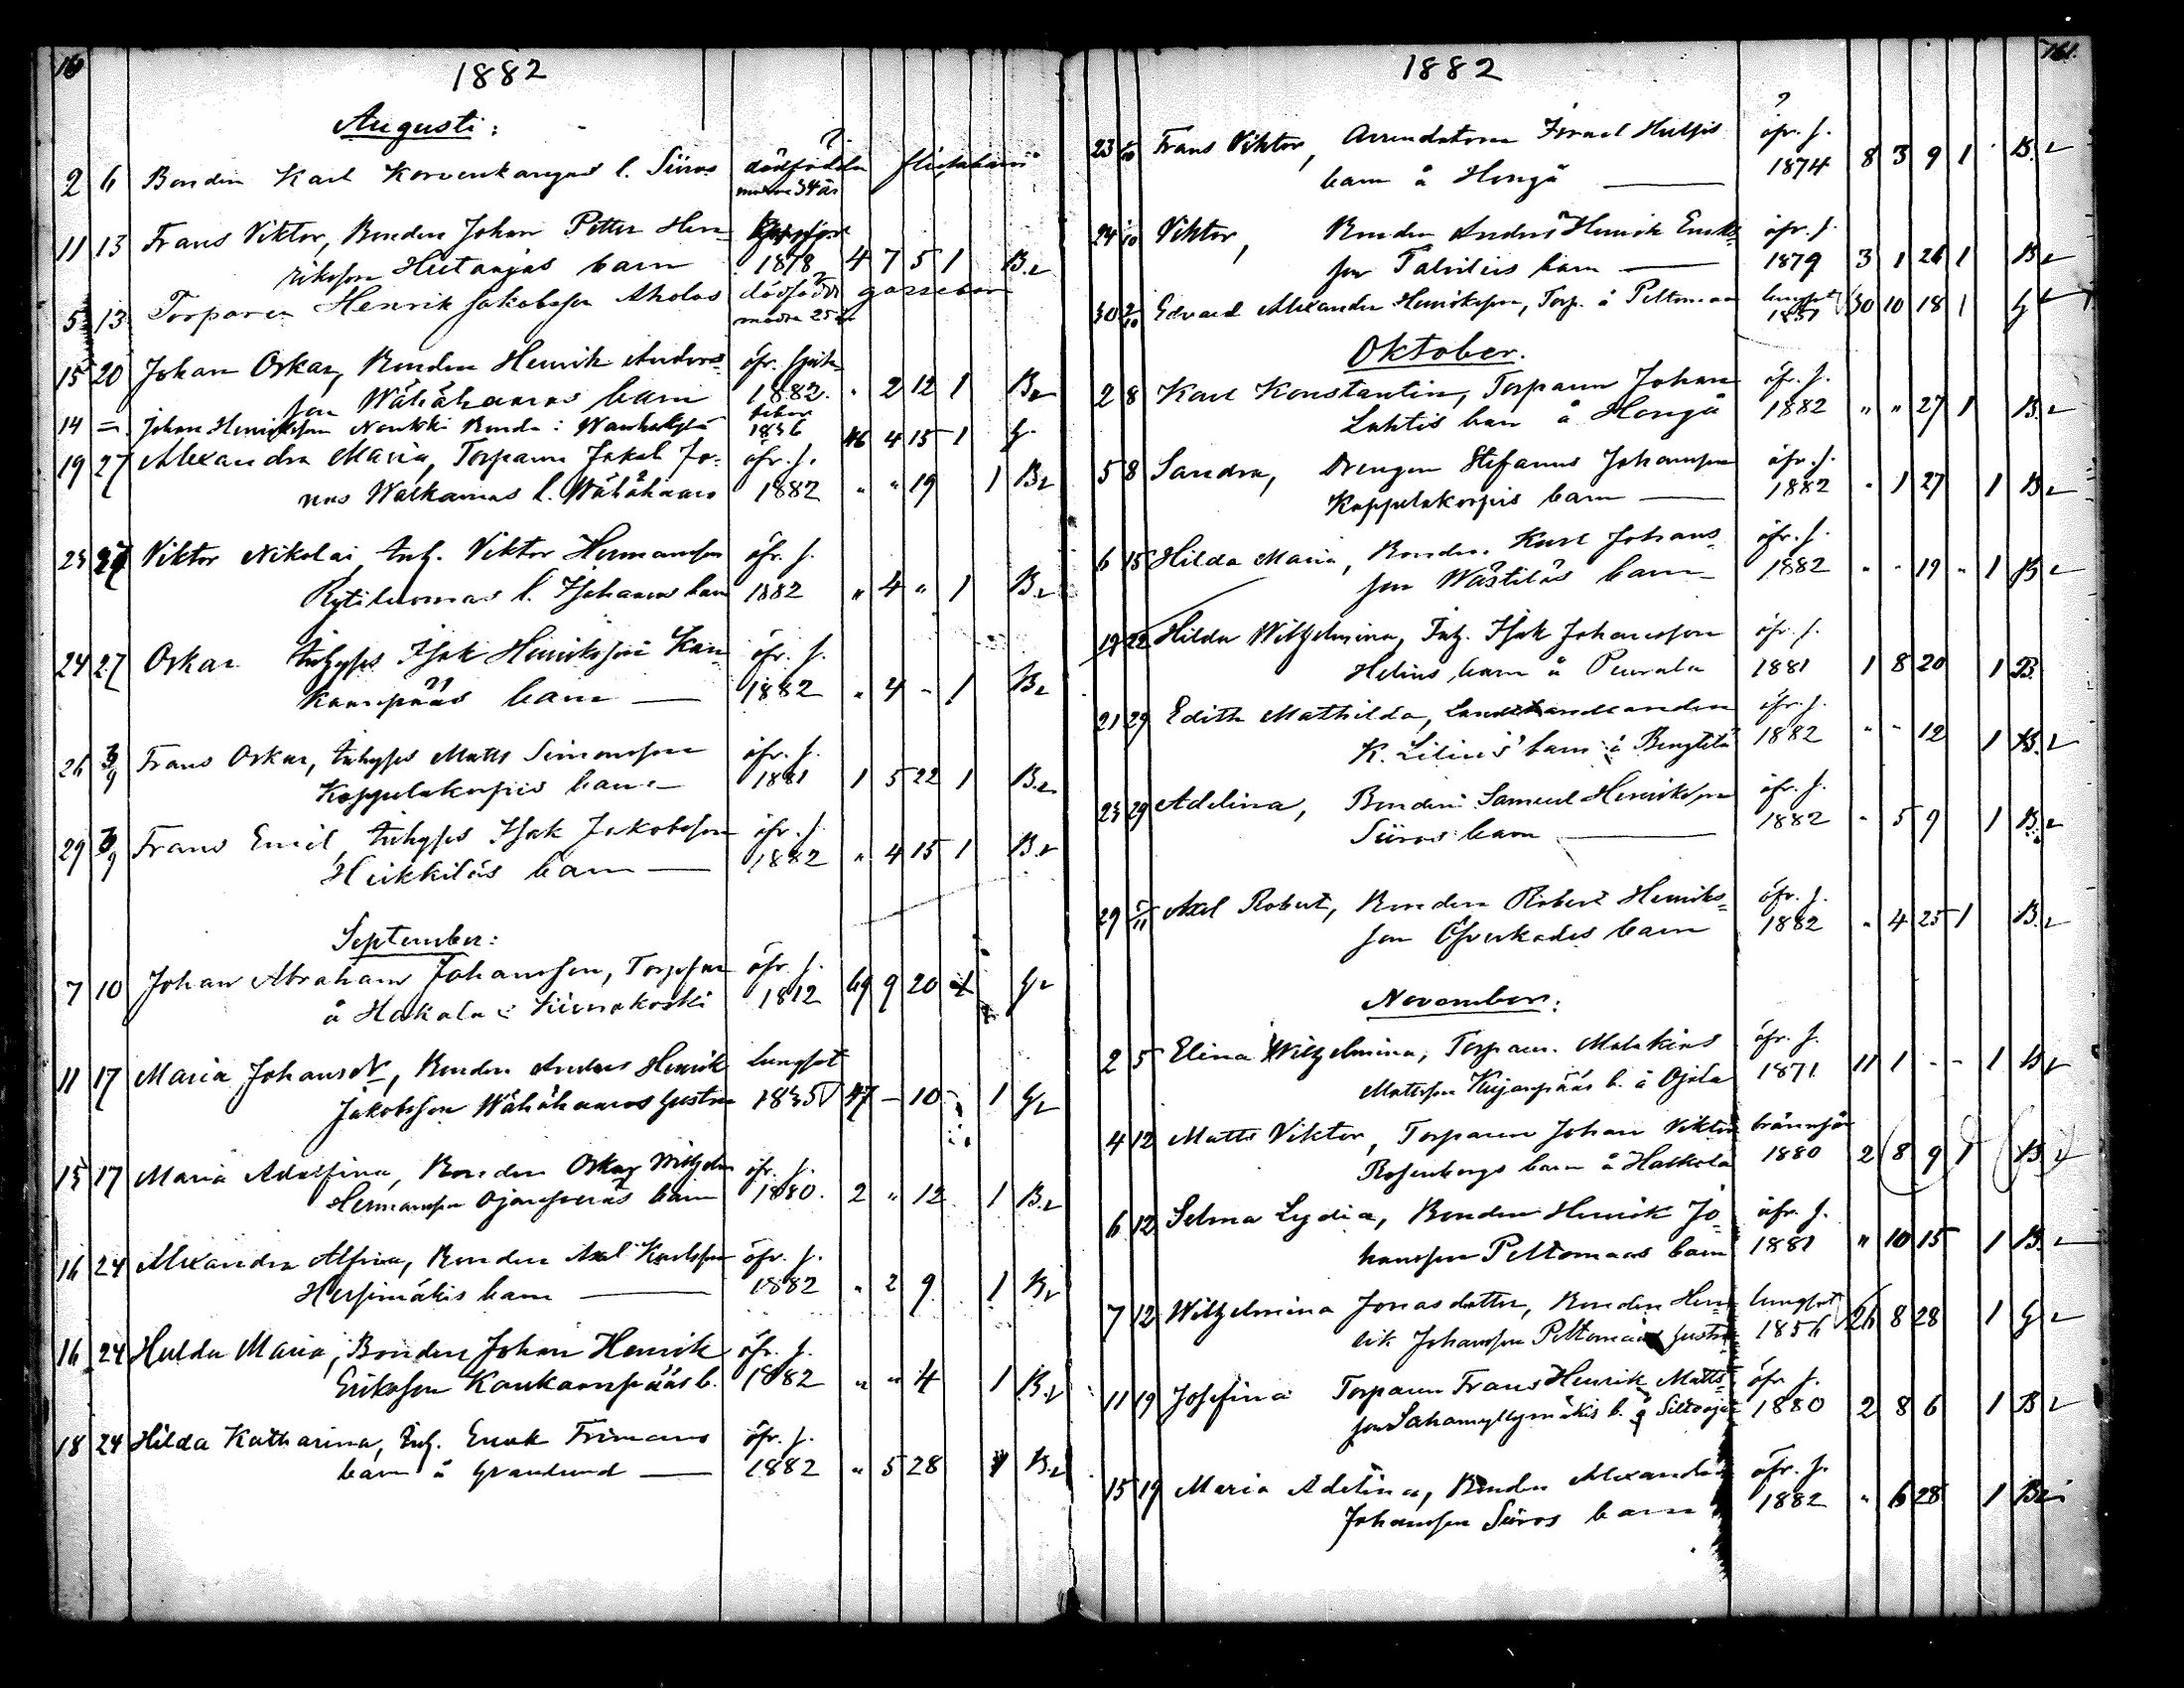 160
1882
Augusti:
2 6 Bonden Karl Korvenkangas l. Siiros dödfödda flickebarn
modren 34 år
11 13 Frans Viktor, Bonden Johan Petter Hen-
riksson Hietaojas barn 1878 4 7 5 1 B.
5 13 Torparen Henrik Jakobsson Aholas dödfödde gossebarn
modren 25 år
15 20 Johan Oskar, Bonden Henrik Anders- öfr. sjuk
son Wähähaaros barn 1882. " 2 12 1 B
14 = Johan Henriksson Bonde i 1836 46 4 15 1 G.
19 27 Alexandra Maria, Torparen Jakob Jo- öfr. s.
nas Walkamas l. Wähähaaro 1882 " " 19 1 B
23 27 Viktor Nikolai, Inh. Viktor Hermansson öfr. s.
Rytiluomas l. barn 1882 " 4 " 1 B
24 27 Oskar Inhyses Isak Henriksson Kan- öfr. s.
kaanpääs barn — 1882 " 4 - 1 B
26 3/9 Frans Oskar, inhyses Matts Simonsson öfr. s.
Koppelakorpis barn 1881 1 5 22 1 B.
29 3/9 Frans Emil, inhyses Isak Jakobsson öfr. s.
Heikkiläs barn — 1882 " 4 15 1 B.
September:
7 10 Johan Abraham Johansson, Torpare öfr. s.
å Hakala i 1812 69 9 20 1 G
11 17 Maria Johansdr, Bonden Anders Henrik lungsot
Jakobsson Wähähaaros hustru 1835 47 - 10 - 1 G
15 17 Maria Adolfina, Bonden Oskar Wilhelm öfr. s.
Hermansson barn 1880. 2 " 12 1 B.
16 24 Alexandra Alfina, Bonden Axel Karlsson öfr. s.
Harsimäkis barn — 1882 " 2 9 1 B
16 24 Hulda Maria, Bonden Johan Henrik öfr. s.
Eriksson Kankaanpääs b. 1882 " " 4 1 B.
18 24 Hilda Katharina, Inh. Enok Frimans öfr. s.
barn å Granlund — 1882 " 5 28 1 B.
161.
1882
23 1/10 Frans Viktor, Arrendatorn Israel Hulsis öfr. s.
barn å Hongå — 1874 8 3 9 1 B.
24 1/10 Viktor, Bonden Anders Henrik Eriks- öfr. s.
son Talvitis barn — 1879 3 1 26 1 B
30 2/10 Edvard Alexander Henriksson, Torp. å Peltomaa lungsot
1851 30 10 18 1 G
Oktober.
2 8 Karl Konstantin, Torparen Johan öfr. s.
Lahtis barn å Hongå 1882 " " 27 1 B.
5 8 Sandra, Drengen Stefanus Johansson öfr. s.
Koppelakorpis barn — 1882 " 1 27 1 B
6 15 Hilda Maria, Bonden Karl Johans- öfr. s.
son Wästiläs barn — 1882 " " 19 " 1 B
19 22 Hilda Wilhelmina, Inh. Isak Johansson öfr. s.
Helins barn å Peurala 1881 1 8 20 1 B.
21 29 Edith Mathilda, Landthandlanden öfr. s.
K. Lilius' barn å 1882 " " 12 1 B.
23 29 Adelina, Bonden Samuel Henriksson öfr. s.
Siiros barn — 1882 " 5 9 1 B
29 5/11 Axel Robert, Bonden Robert Henriks- öfr. s.
son Öfverkades barn 1882 " 4 25 1 B.
November:
2 5 Elina Wilhelmina, Torparen Malakias öfr. s.
Mattsson Kujanpääs b. å Ojala 1871 11 1 - - 1 B
4 12 Matts Viktor, Torparen Johan Viktor brännsår
Rosenbergs barn å Hakkola 1880 2 8 9 1 B
6 12 Selma Lydia, Bonden Henrik Jo- öfr. s.
hansson Peltomaas barn 1881 " 10 15 1 B.
7 12 Wilhelmina Jonasdotter, Bonden Hen- lungsot
rik Johansson Peltomaas hustru 1856 26 8 28 1 G
11 19 Josefina Torparen Frans Henrik Matts- öfr. s.
son Sahamyllymäkis b. å 1880 2 8 6 1 B
15 19 Maria Adelina, Bonden Alexander öfr. s.
Johansson Siiros barn 1882 " 6 28 1 B